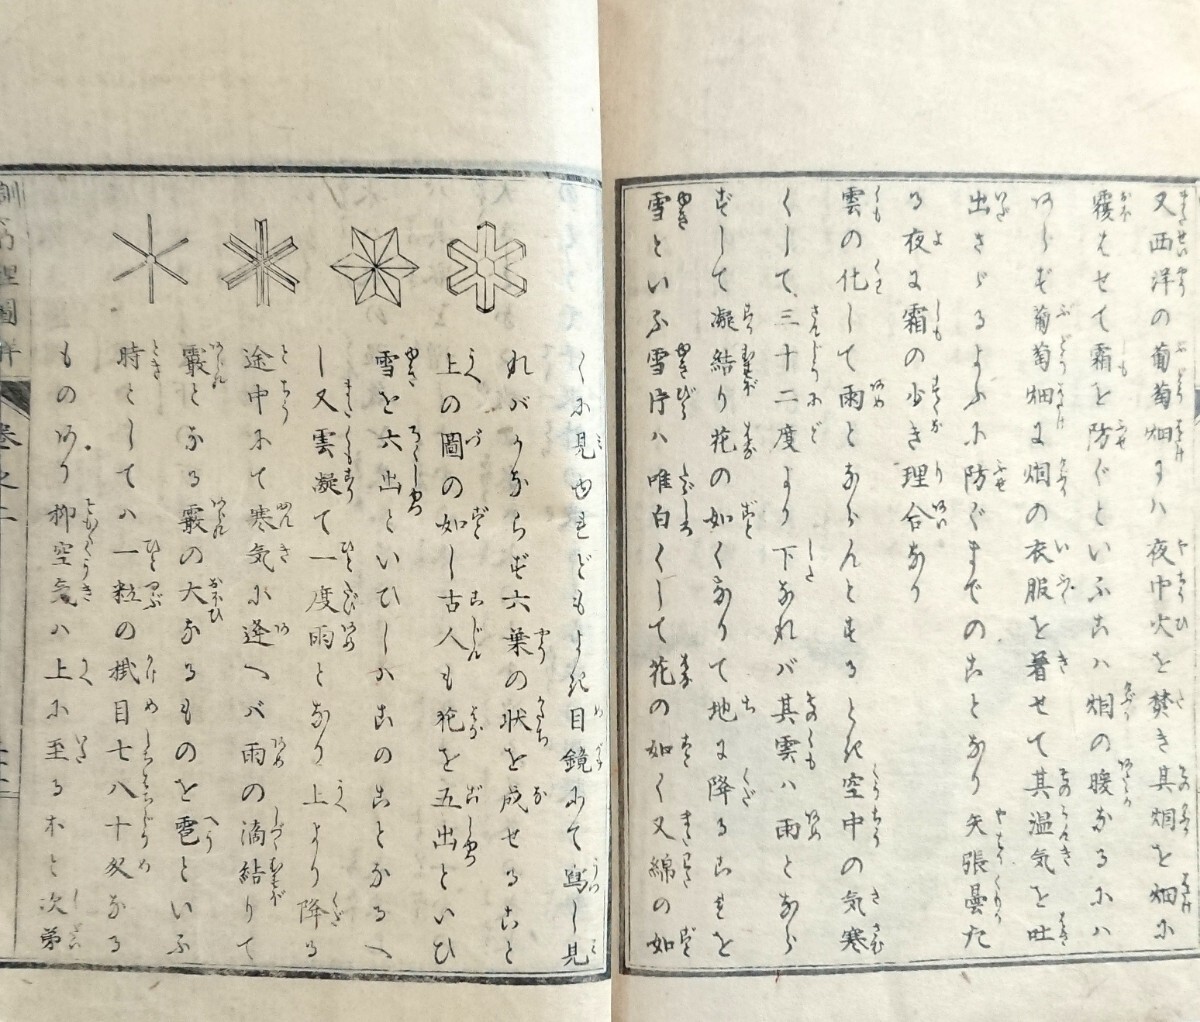 又西洋の葡萄畑にハ夜中火を焚き其烟を畑に
覆はせて霜を防ぐといふこハ烟の暖なるにハ
あらず葡萄畑に烟の衣服を着せて其温気を吐
出さゞるよふに防ぐまでのことなり矢張曇た
る夜に霜の少き理合なり
雲の化して雨とならんとするとき空中の気寒
くして三十二度より下なれバ其雲ハ雨となら
ずして凝結り花の如くなりて地に降るこれを
雪といふ雪片ハ唯白くして花の如く又綿の如
くに見ゆれどもよき目鏡にて寫し見
ればかならず六葉の状を成せること
上の圖の如し古人も花を五出といひ
雪を六出といひしハこのことなるべ
し又雲凝て一度雨となり上より降る
途中にて寒気に逢へバ雨の滴結りて
霰となる霰の大なるものを雹といふ
時としてハ一粒の掛目七八十匁なる
ものあり抑空気ハ上に至るホと次第
訓蒙窮理圖解
巻之二